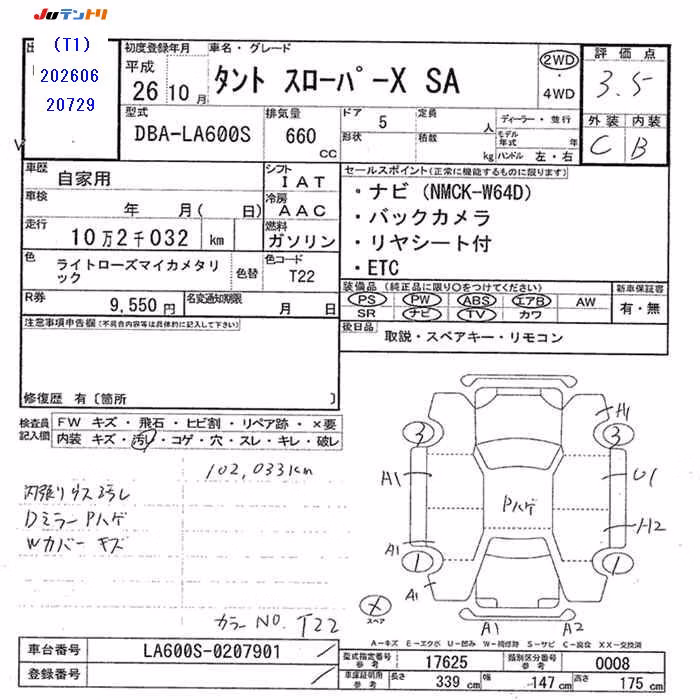 JUテントリ
(T1)
202606
20729
初度登録年月
平成
26 10 月
車名・グレード
タント スローパ-X SA
2WD
・
4WD
評価点
3.5
外装 内装
C B
型式
DBA-LA600S
排気量
660
CC
ドア 5
形状
定員 人
積数 kg
ディーラー・並行
モデル年式 年
ハンドル 左・右
車歴
自家用
シフト
IAT
車検
年 月( 日)
冷房
AAC
走行
10万2千032 km
燃料
ガソリン
色
ライトローズマイカメタリック
色替
色コード
T22
R券
9,550円
名変通知期限
月 日
セールスポイント(正常に機能するものに限ります)
・ナビ(NMCK-W64D)
・バックカメラ
・リヤシート付
・ETC
装備品(純正品に限り○をつけてください)
PS PW ABS エアB AW
SR ナビ TV カワ
新車保証書
有・無
後日品
取説・スペアキー・リモコン
注意事項申告欄(不具合内容等は具体的に記入して下さい)
修復歴 有〔箇所 〕
検査員記入欄
FW キズ・飛石・ヒビ割・リペア跡・×要
内装 キズ・汚レ・コゲ・穴・スレ・キレ・破レ
102,033km
内張りウス汚レ
Dミラー Pハゲ
Wカバー キズ
カラー NO. T22
A1
3
3
A1
U1
Pハゲ
H2
A1
1
1
A1
×
スペア
A1 A2
A-キズ E-エクボ U-凹み W-補修跡 S-サビ C-腐食 XX-交換済
車台番号
LA600S-0207901
登録番号
型式指定番号 参考
17625
類別区分番号 参考
0008
車庫証明用 参考
長さ 339 cm
幅 147 cm
高さ 175 cm